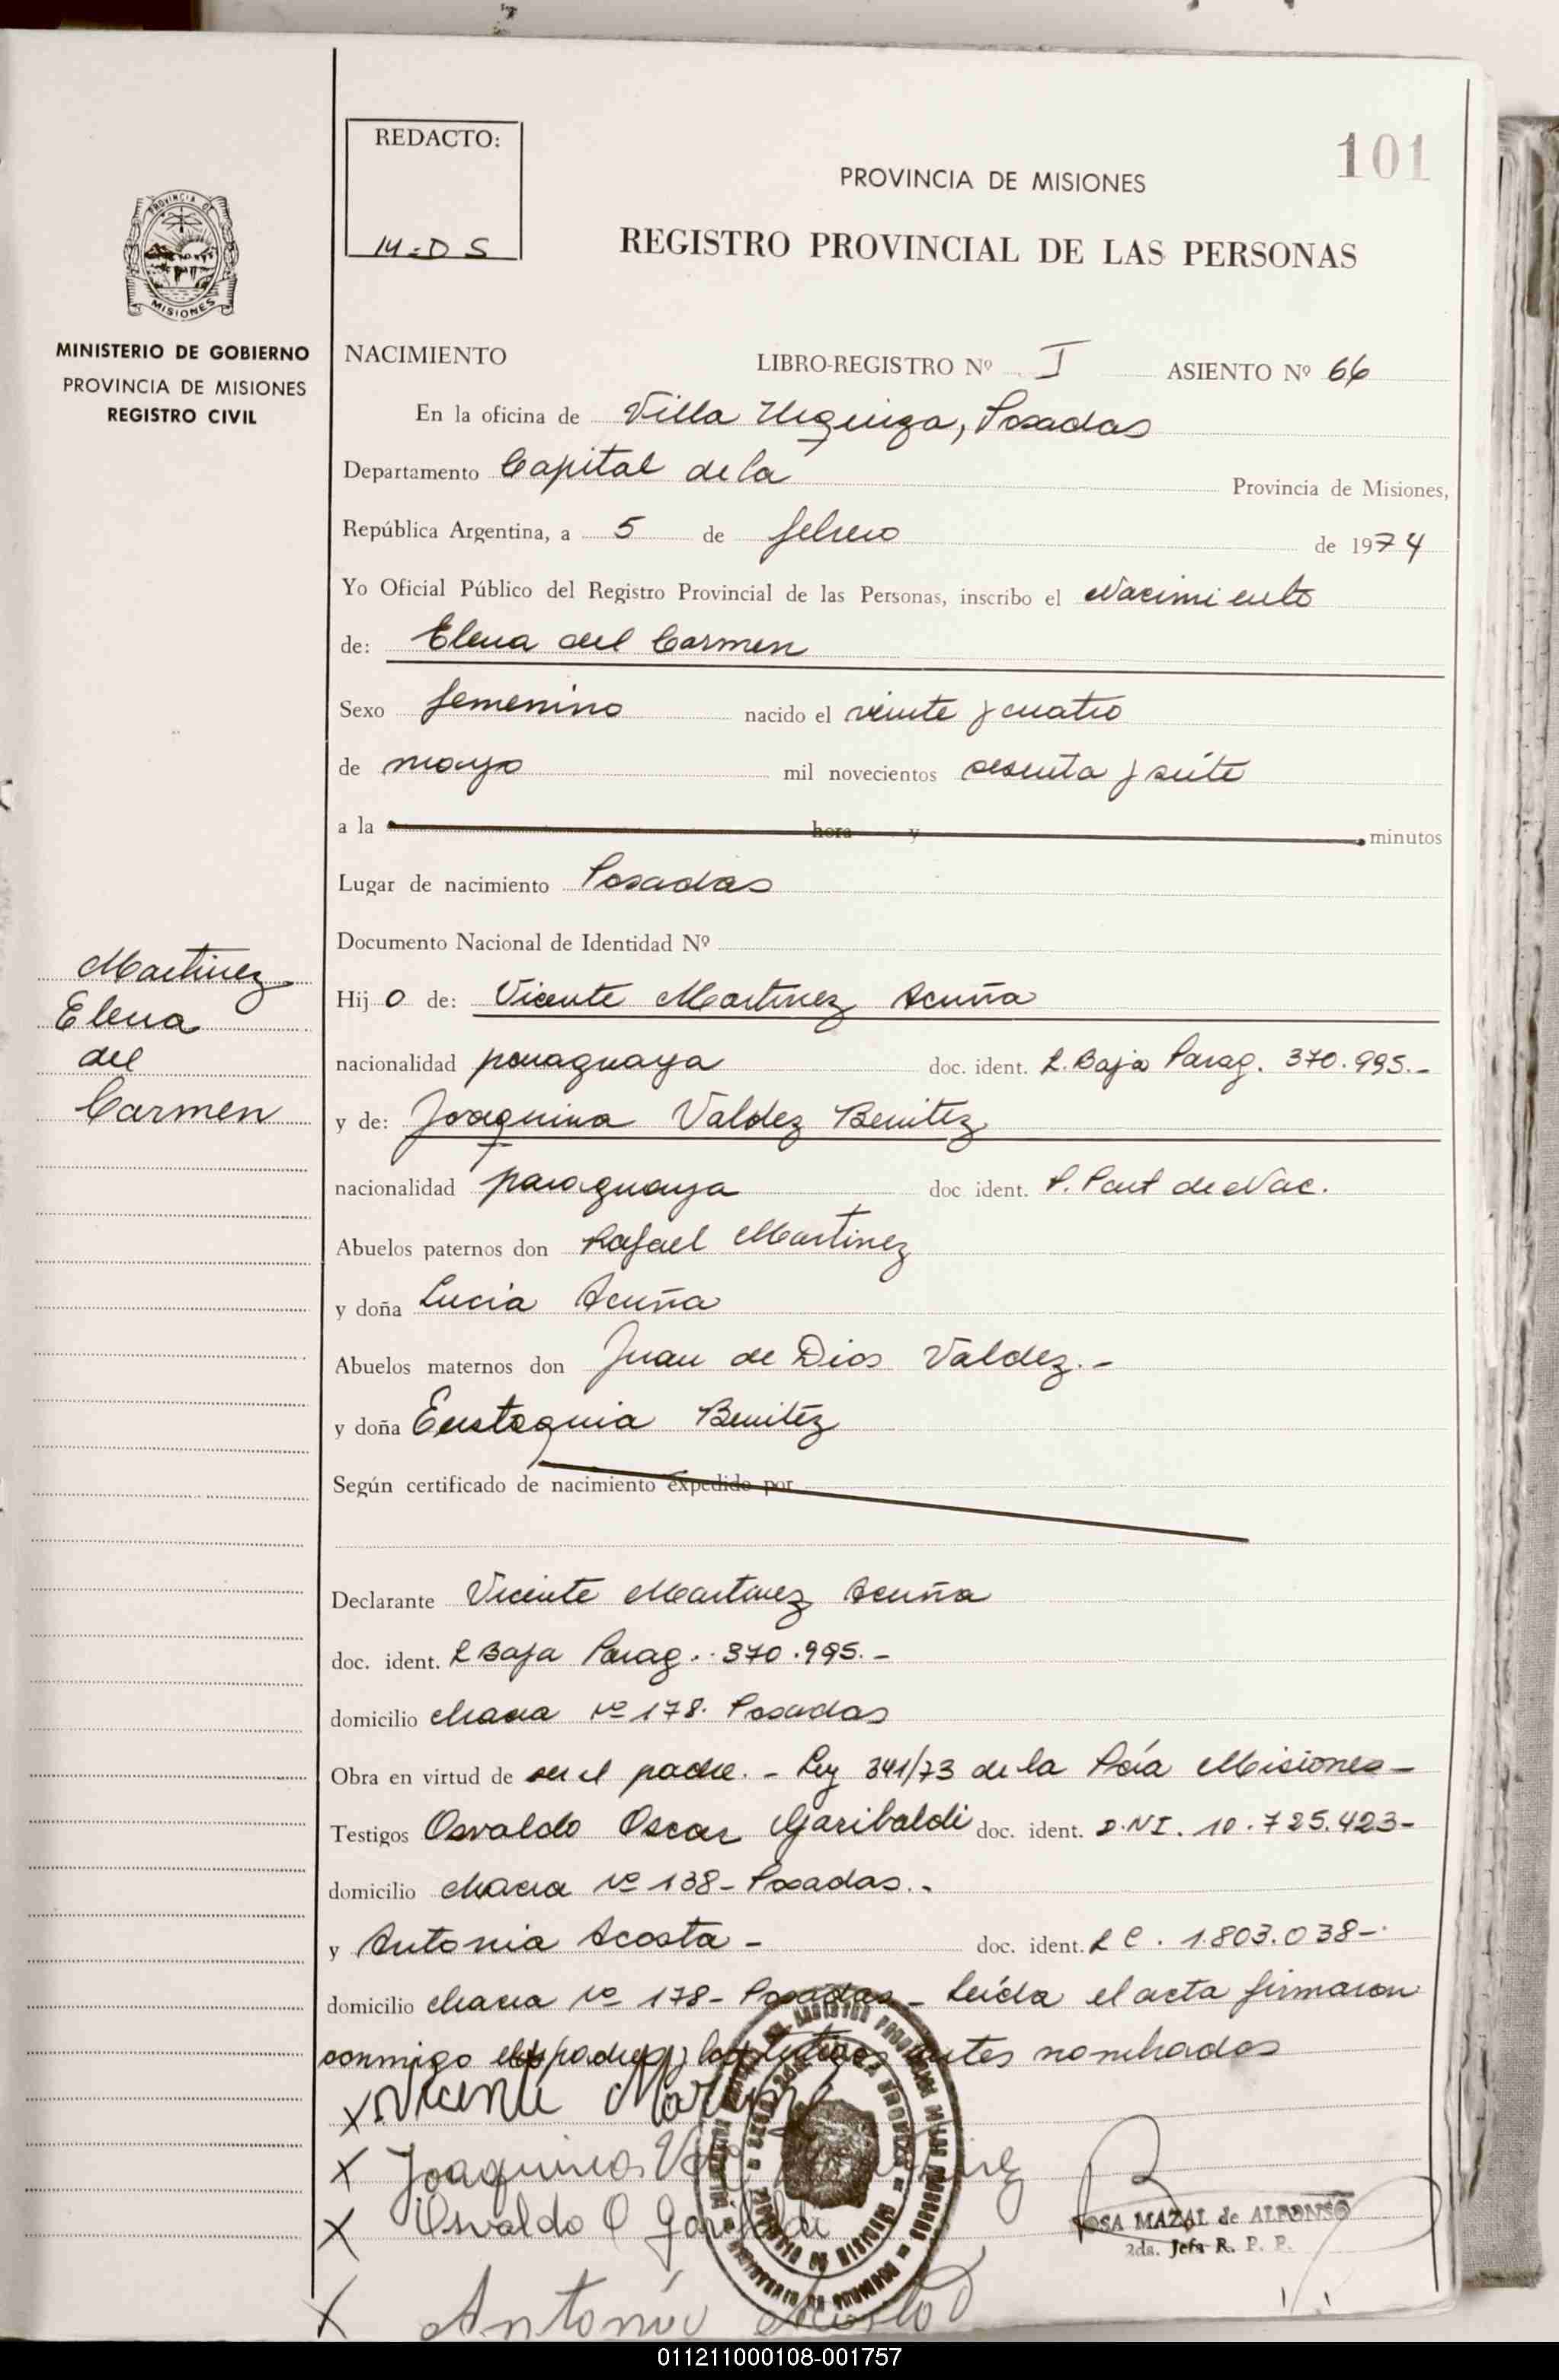 REDACTO:
M-D S
101
PROVINCIA DE MISIONES
REGISTRO PROVINCIAL DE LAS PERSONAS
PROVINCIA DE
MISIONES
MINISTERIO DE GOBIERNO
PROVINCIA DE MISIONES
REGISTRO CIVIL
NACIMIENTO LIBRO-REGISTRO Nº I ASIENTO Nº 66
En la oficina de Villa Urquiza, Posadas
Departamento Capital de la Provincia de Misiones,
República Argentina, a 5 de febrero de 1974
Yo Oficial Público del Registro Provincial de las Personas, inscribo el Nacimiento
de: Elena del Carmen
Sexo femenino nacido el veinte y cuatro
de mayo mil novecientos sesenta y siete
a la hora y minutos
Lugar de nacimiento Posadas
Documento Nacional de Identidad Nº
Martinez
Elena
del
Carmen
Hij o de: Vicente Martinez Acuña
nacionalidad paraguaya doc. ident. L. Baja Parag. 370.995.-
y de: Joaquina Valdez Benitez
nacionalidad paraguaya doc ident. P. Part de Nac.
Abuelos paternos don Rafael Martinez
y doña Lucia Acuña
Abuelos maternos don Juan de Dios Valdez.-
y doña Eustaquia Benitez
Según certificado de nacimiento expedido por
Declarante Vicente Martinez Acuña
doc. ident. L Baja Parag. 370.995.-
domicilio chacra Nº 178. Posadas
Obra en virtud de ser el padre. - Ley 341/73 de la Pcía Misiones-
Testigos Osvaldo Oscar Garibaldi doc. ident. D.NI. 10.725.423-
domicilio chacra Nº 138- Posadas.-
y Antonia Acosta - doc. ident. L C. 1.803.038-
domicilio chacra Nº 178- Posadas- Leída el acta firmaron
conmigo padres y los testigos antes nombrados
x Vicente Martinez
x Joaquina
x Osvaldo O Garibaldi
x Antonia Acosta
OSA MAZAL de ALFONSO
2da. Jefa R. P. P.
011211000108-001757